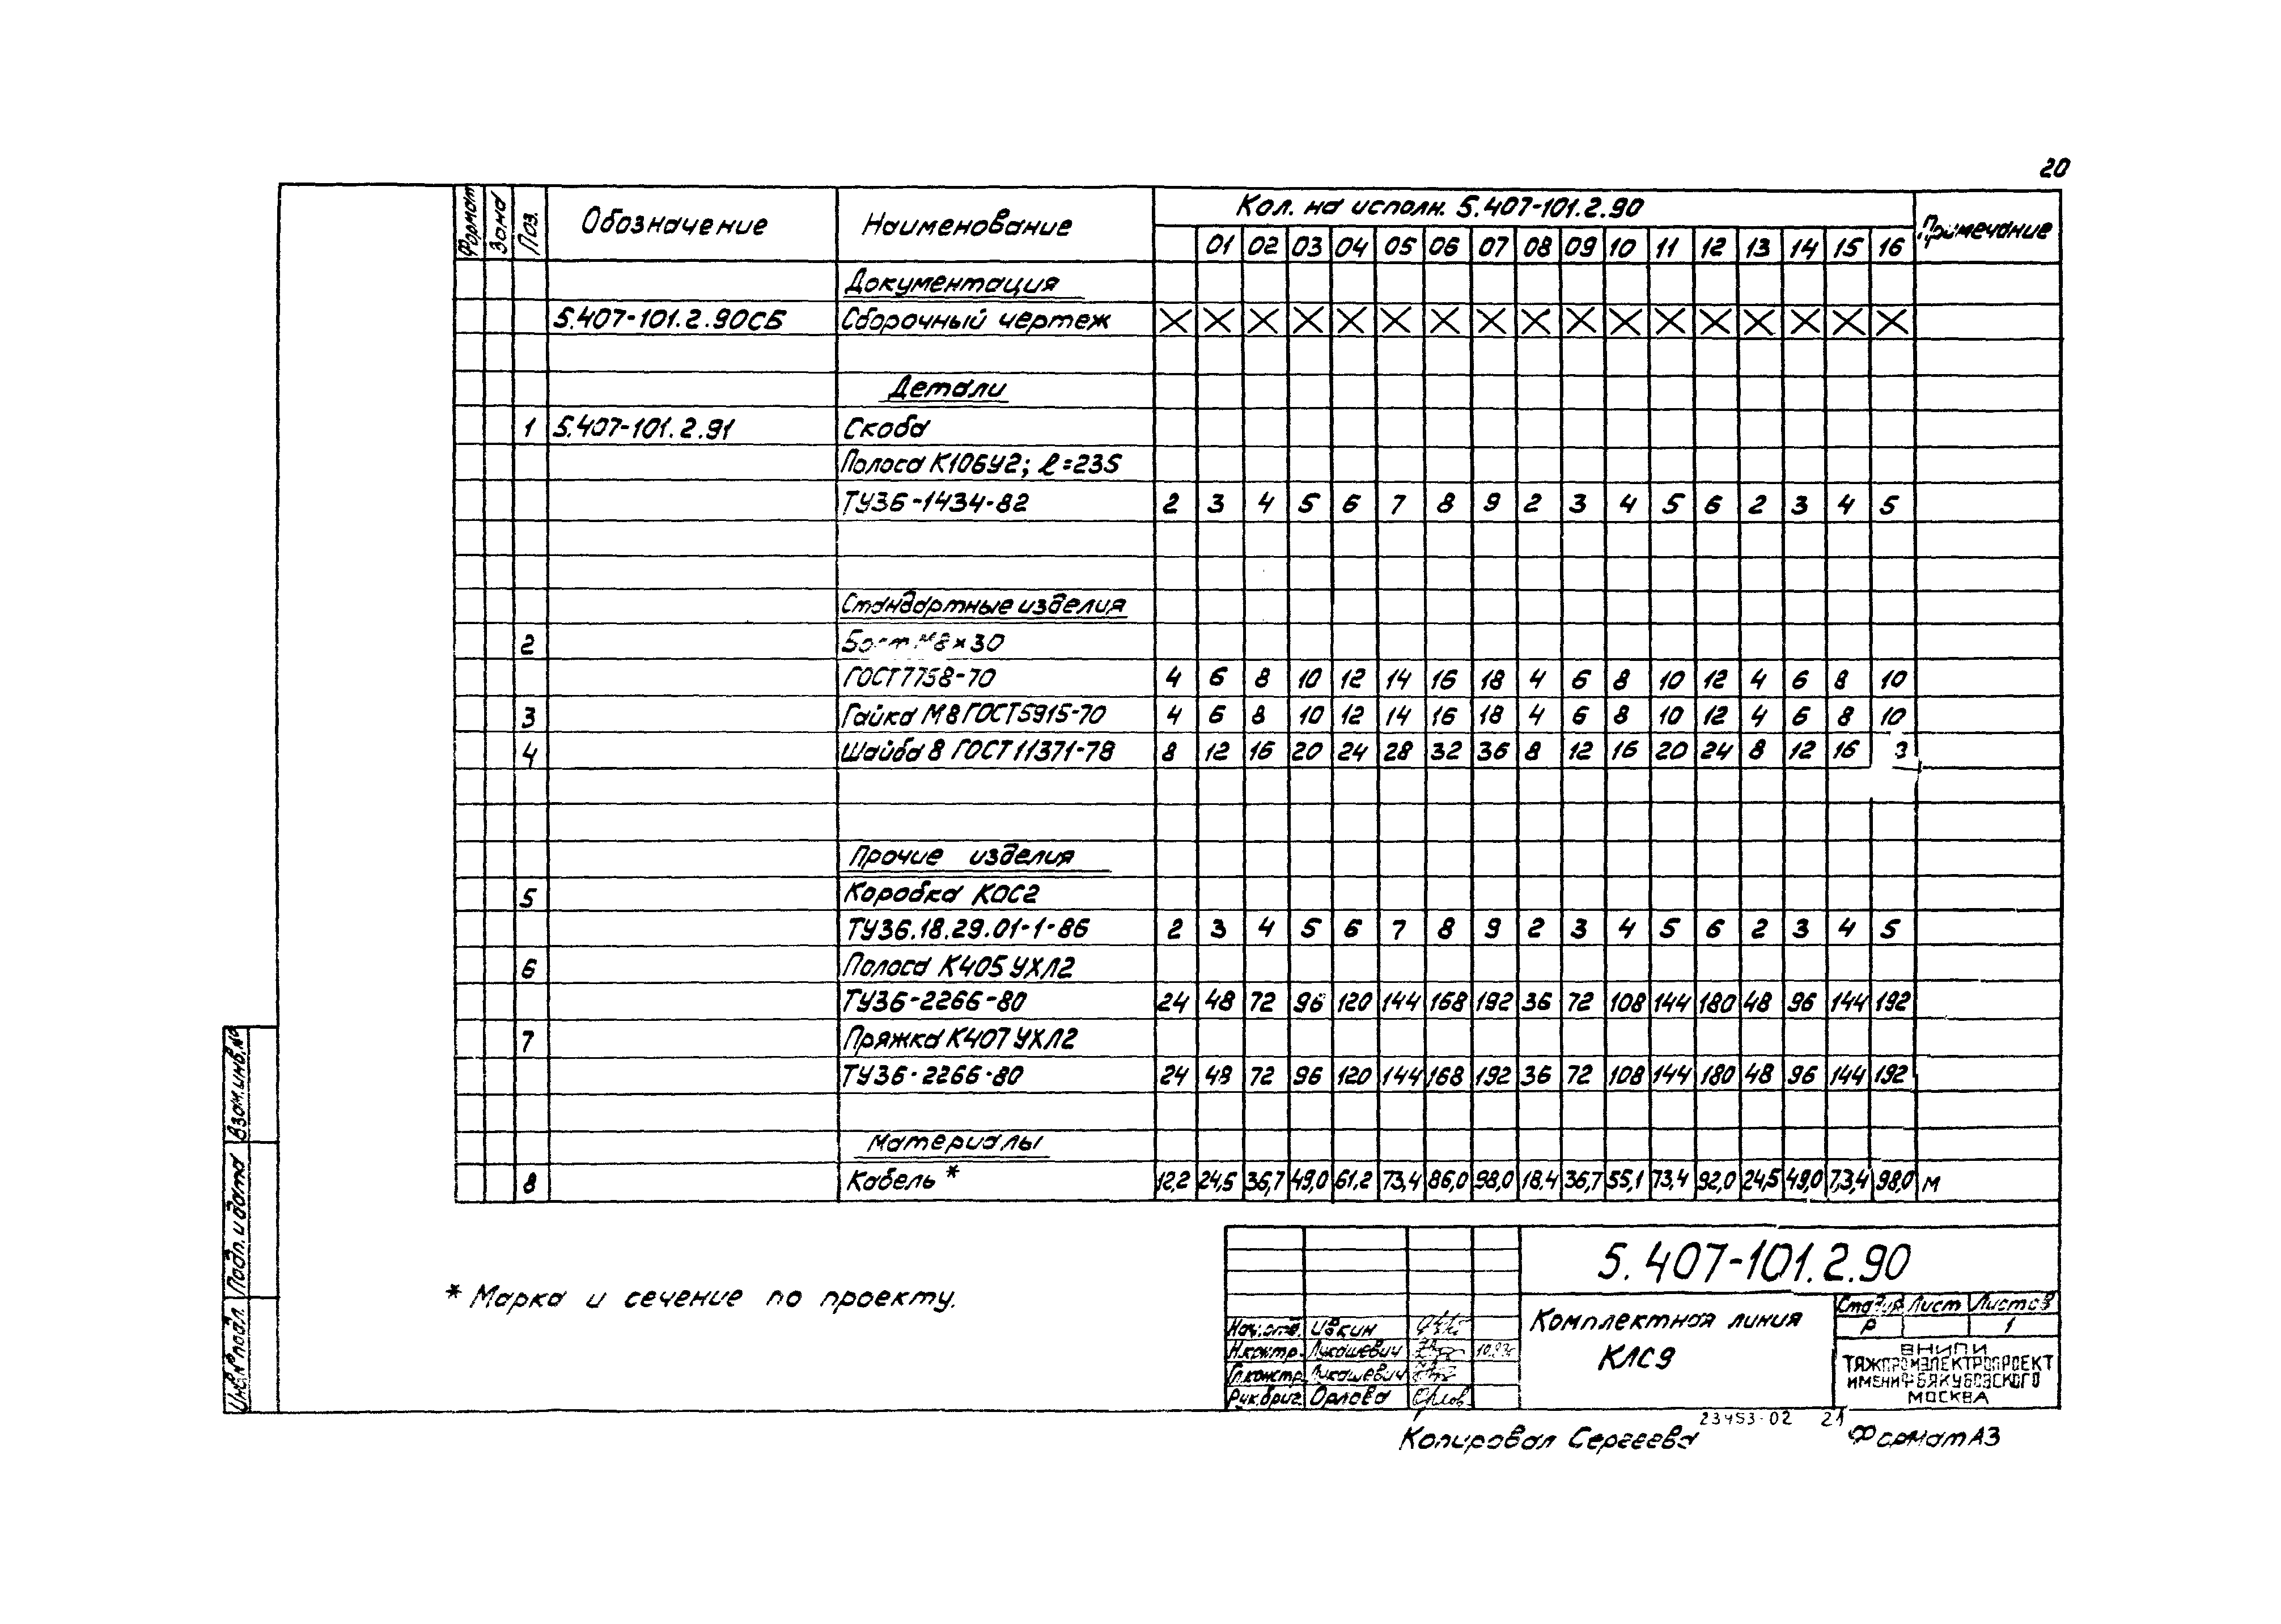 20
Формат Зона Поз. Обозначение Наименование Кол. на исполн. 5.407-101.2.90 Примечание
01 02 03 04 05 06 07 08 09 10 11 12 13 14 15 16
Документация
5.407-101.2.90СБ Сборочный чертеж X X X X X X X X X X X X X X X X X
Детали
1 5.407-101.2.91 Скоба
Полоса К106У2; ℓ=235
ТУ36-1434-82 2 3 4 5 6 7 8 9 2 3 4 5 6 2 3 4 5
Стандартные изделия
2 М8×30
ГОСТ7758-70 4 6 8 10 12 14 16 18 4 6 8 10 12 4 6 8 10
3 Гайка М8 ГОСТ5915-70 4 6 8 10 12 14 16 18 4 6 8 10 12 4 6 8 10
4 Шайба 8 ГОСТ11371-78 8 12 16 20 24 28 32 36 8 12 16 20 24 8 12 16
Прочие изделия
5 Коробка КОС2
ТУ36.18.29.01-1-86 2 3 4 5 6 7 8 9 2 3 4 5 6 2 3 4 5
6 Полоса К405 УХЛ2
ТУ36-2266-80 24 48 72 96 120 144 168 192 36 72 108 144 180 48 96 144 192
7 Пряжка К407 УХЛ2
ТУ36-2266-80 24 48 72 96 120 144 168 192 36 72 108 144 180 48 96 144 192
Материалы
8 Кабель * 12,2 24,5 36,7 49,0 61,2 73,4 86,0 98,0 18,4 36,7 55,1 73,4 92,0 24,5 49,0 73,4 98,0 м
* Марка и сечение по проекту.
5.407-101.2.90
Комплектная линия
КЛС9
Стадия Лист Листов
Р 1
Нач.отд. Ивкин
Н.контр. Лукашевич
Гл.констр. Лукашевич
Рук.бриг. Орлова
ВНИПИ
ТЯЖПРОМЭЛЕКТРОПРОЕКТ
ИМЕНИ Ф.Б.ЯКУБОВСКОГО
МОСКВА
23453-02 21
Копировал Сергеева Формат А3
Инв.№ подл. Подп. и дата Взам.инв.№